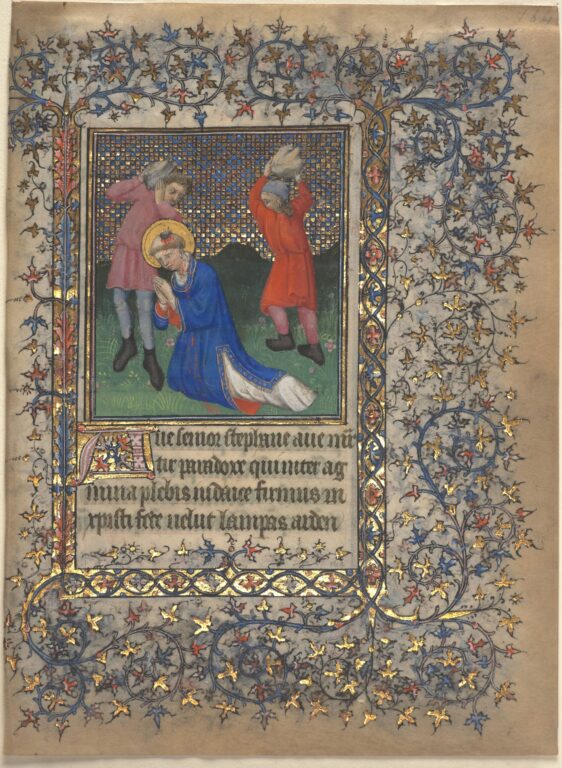 Aue senior stephane aue mar
tir paradoxe qui inter ag
mina plebis iudaice firmus in
xpisti fide uelut lampas arden